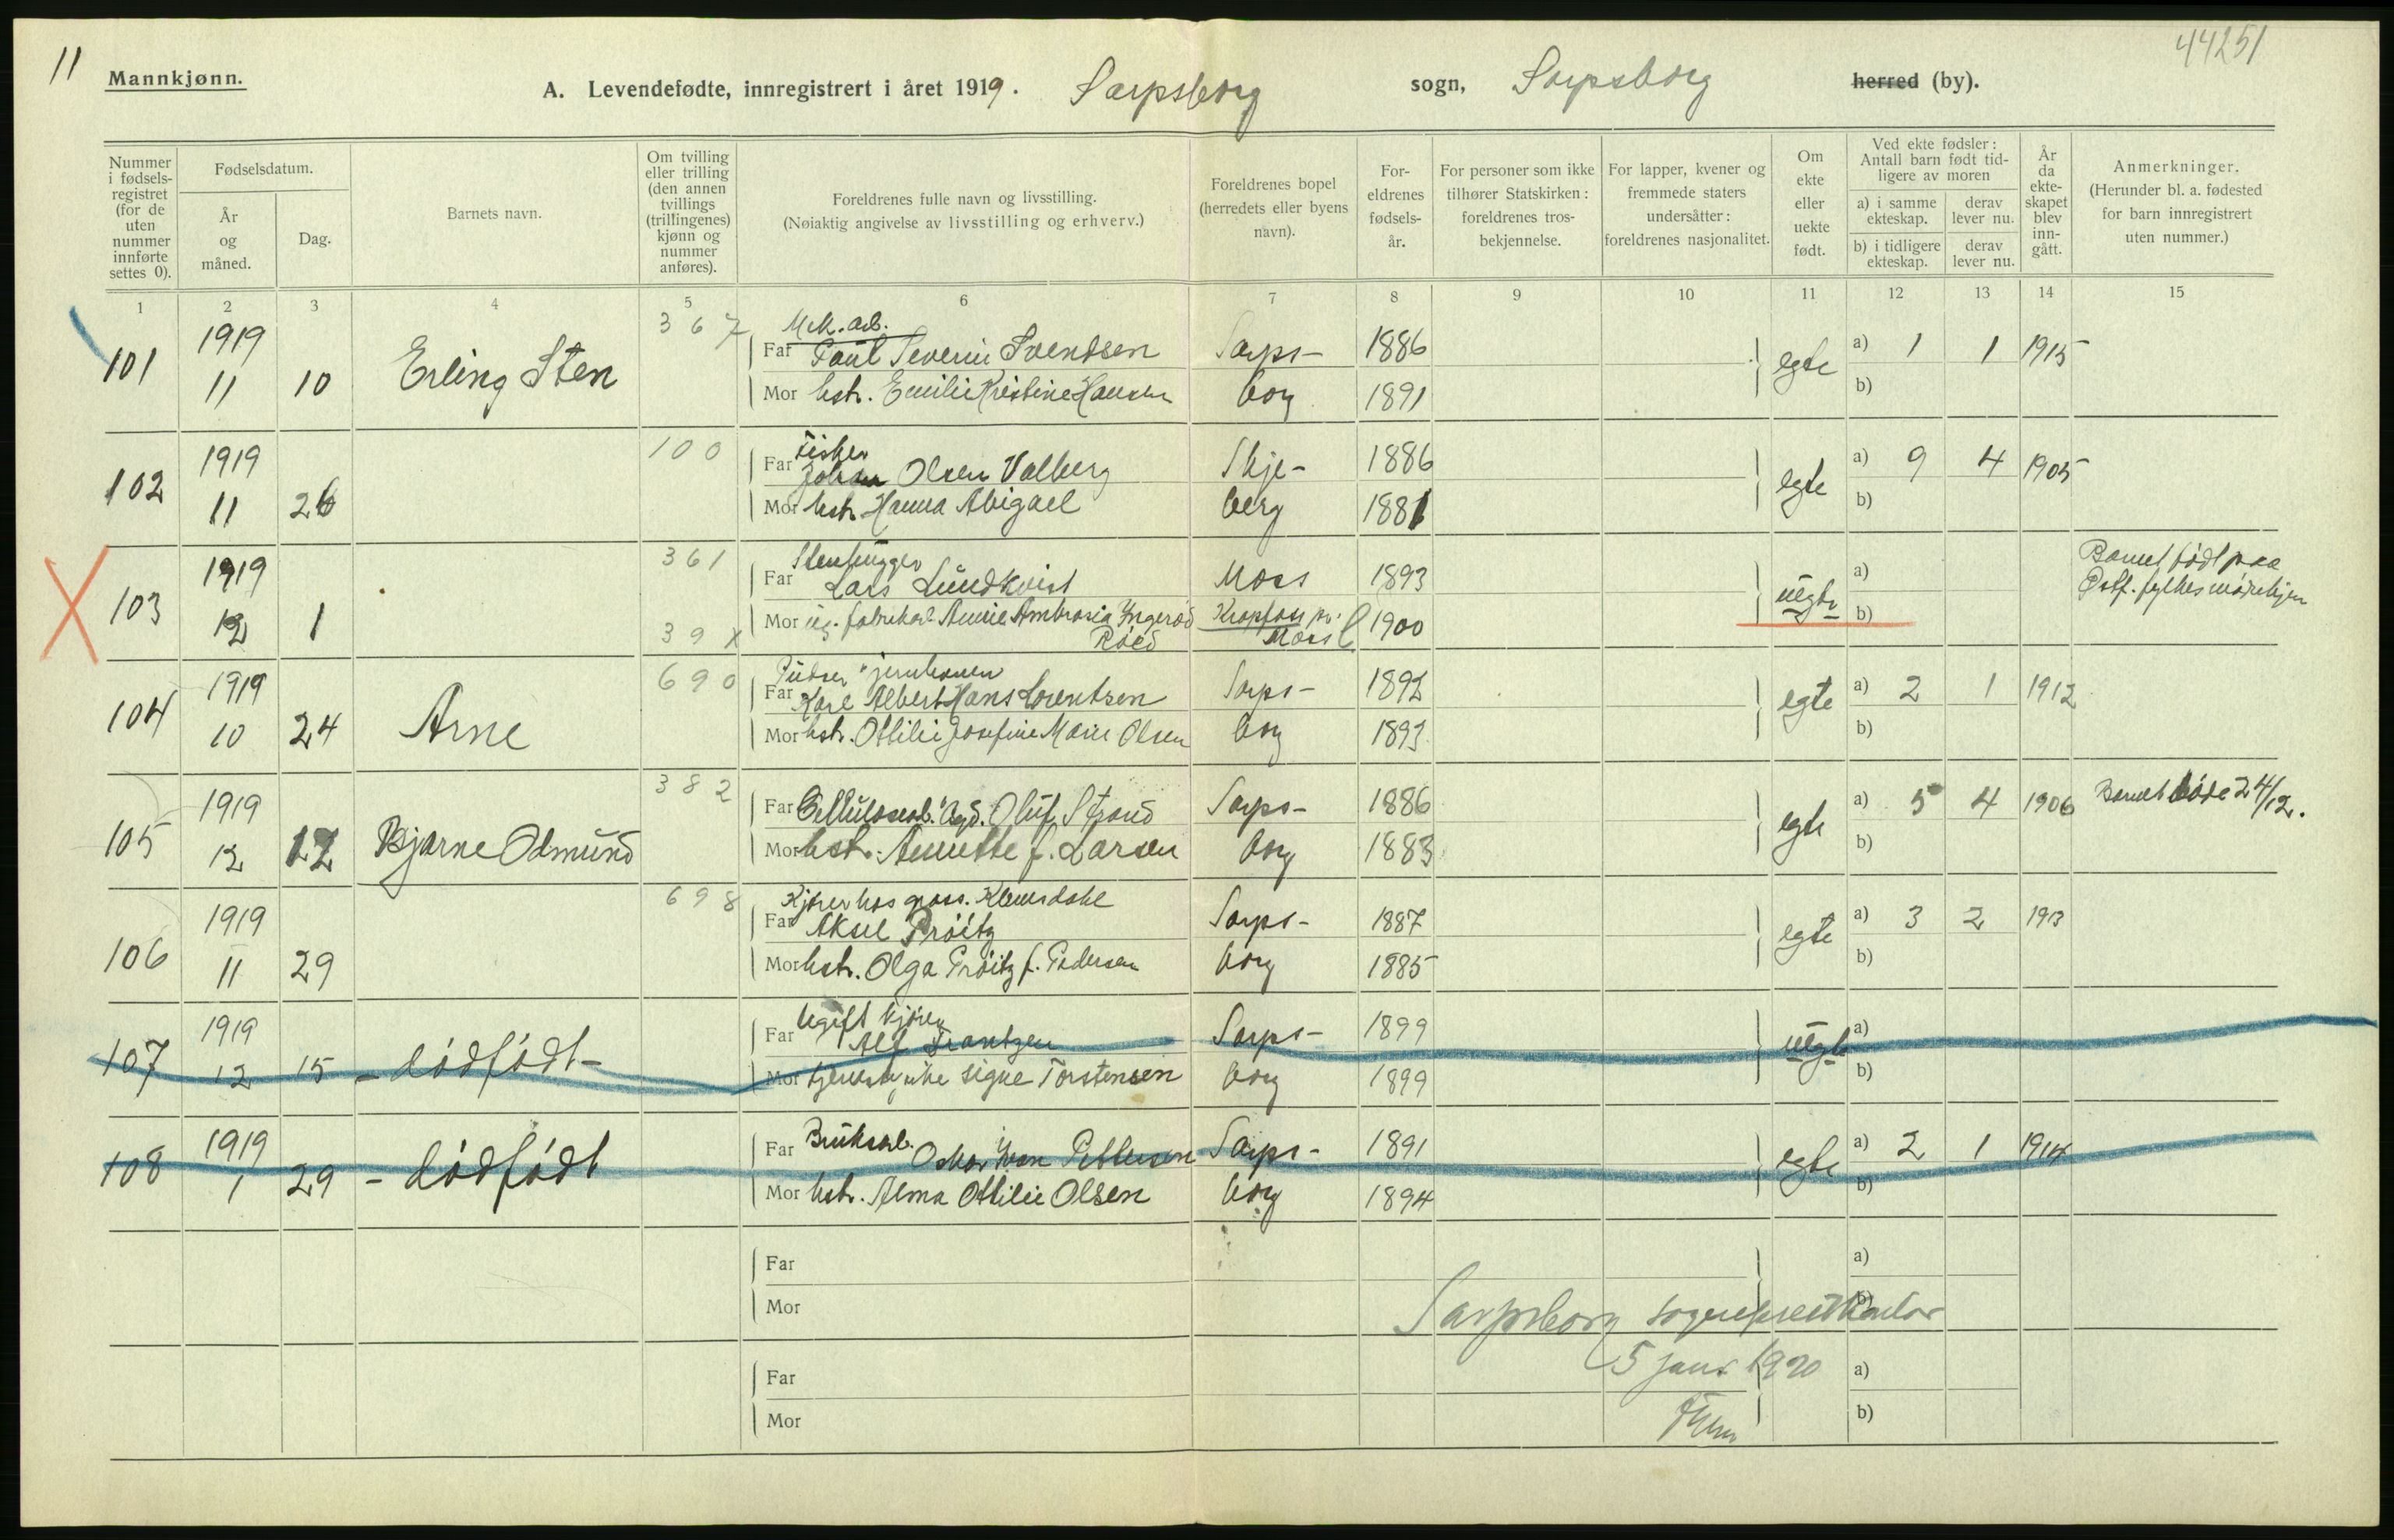 11
44251
Mannkjønn.
A. Levendefødte, innregistrert i året 1919. Sarpsborg sogn, Sarpsborg herred (by).
Nummer i fødsels-registret (for de uten nummer innførte settes 0).
Fødselsdatum.
År og måned.
Dag.
Barnets navn.
Om tvilling eller trilling (den annen tvillings (trillingenes) kjønn og nummer anføres).
Foreldrenes fulle navn og livsstilling.
(Nøiaktig angivelse av livsstilling og erhverv.)
Foreldrenes bopel (herredets eller byens navn).
For-eldrenes fødsels-år.
For personer som ikke tilhører Statskirken: foreldrenes tros-bekjennelse.
For lapper, kvener og fremmede staters undersåtter: foreldrenes nasjonalitet.
Om ekte eller uekte født.
Ved ekte fødsler: Antall barn født tid-ligere av moren
a) i samme ekteskap.
derav lever nu.
b) i tidligere ekteskap.
derav lever nu.
År da ekte-skapet blev inn-gått.
Anmerkninger.
(Herunder bl. a. fødested for barn innregistrert uten nummer.)
1 2 3 4 5 6 7 8 9 10 11 12 13 14 15
367
Mek. arb.
101 1919 Far Paul Severin Svendsen Sarps- 1886 egte a) 1 1 1915
11 10 Erling Sten Mor hstr. Emilie Kristine Hansen borg 1891 b)
100
Fisker
102 1919 Far Johan Olsen Valberg Skje- 1886 egte a) 9 4 1905
11 26 Mor hstr. Hanna Abigael berg 1881 b)
361
Stenhugger
103 1919 Far Lars Lundkvist Moss 1893 uegte a) Barnet født paa
12 1 Mor ug. fabrikarb. Annie Ambrosia Yngerød Krapfoss pr. 1900 b) Østf. fylkes mødrehjem
39x Røed Moss
690
Pudser v. jernhaven
104 1919 Far Karl Albert Hans Lorentsen Sarps- 1892 egte a) 2 1 1912
10 24 Arne Mor hstr. Ottilie Josefine Marie Olsen borg 1893 b)
382
105 1919 Far Cellulosearb. Agd. Oluf Strand Sarps- 1886 egte a) 5 4 1906 Barnet døde 24/12.
12 12 Bjarne Odmund Mor hstr. Annette f. Larsen borg 1883 b)
698
Kjører hos gross. Klemsdahl
106 1919 Far Aksel Prøitz Sarps- 1887 egte a) 3 2 1913
11 29 Mor hstr. Olga Prøitz f. Pedersen borg 1885 b)
Ugift kjører
107 1919 Far Alf Frantzen Sarps- 1899 uegte a)
12 15 - dødfødt - Mor tjenestepike Signe Torstensen borg 1899 b)
108 1919 Far Bruksarb. Oskar Ivan Pettersen Sarps- 1891 egte a) 2 1 1914
1 29 - dødfødt Mor hstr. Alma Ottilie Olsen borg 1894 b)
Far a)
Mor b)
Sarpsborg sogneprestkontor
Far 5 janr 1920 a)
Mor b)